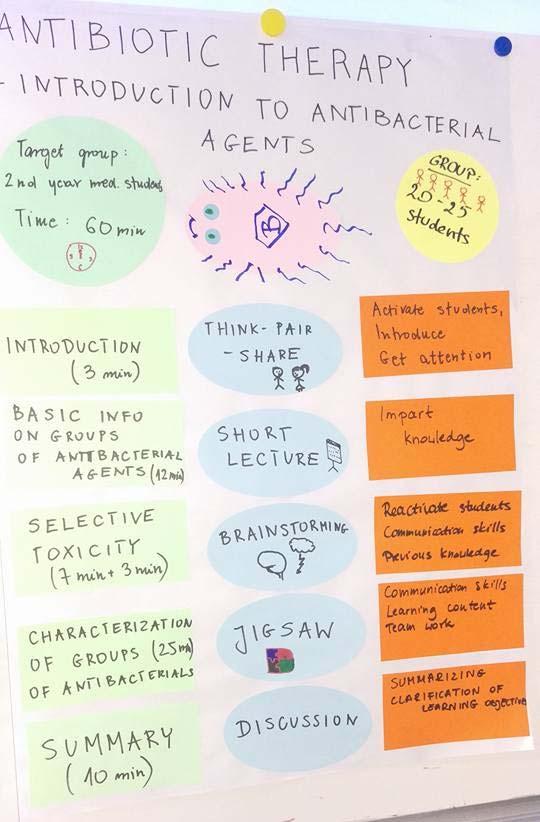 ANTIBIOTIC THERAPY
- INTRODUCTION TO ANTIBACTERIAL
AGENTS
Target group:
2nd year med. students
Time: 60 min
B
GROUP:
20-25
students
INTRODUCTION
(3 min)
THINK-PAIR
-SHARE
Activate students,
Introduce
Get attention
BASIC INFO
ON GROUPS
OF ANTIBACTERIAL
AGENTS (12 min)
SHORT
LECTURE
Impart
knowledge
SELECTIVE
TOXICITY
(7 min + 3 min)
BRAINSTORMING
Reactivate students
Communication skills
Previous knowledge
CHARACTERIZATION
OF GROUPS (25 min)
OF ANTIBACTERIALS
JIGSAW
Communication skills
Learning content
Team work
SUMMARY
(10 min)
DISCUSSION
SUMMARIZING
CLARIFICATION OF
LEARNING OBJECTIVE